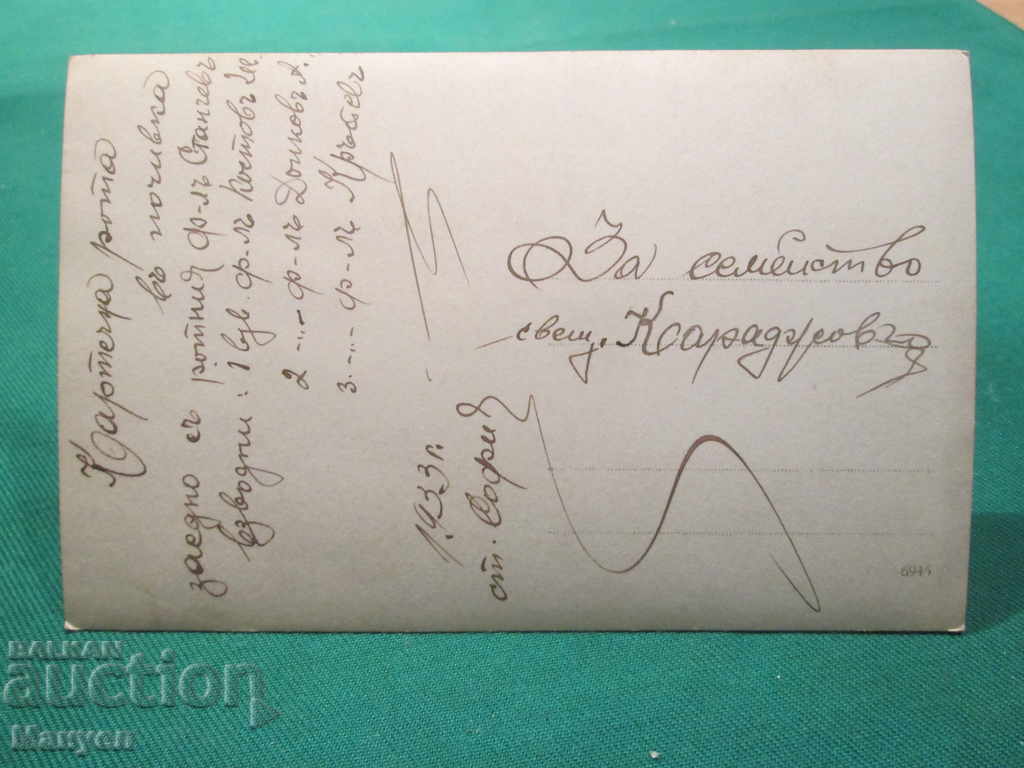 Картечна рота
въ почивка
заедно съ ротния ф-лъ Станчевъ
Взводни: 1 взв. ф-лъ Костовъ
2 -"- ф-лъ Доковъ А.
3 -"- ф-лъ Кръстевъ
1933 г.
от. София
За семейство
свещ. Караджовъ
6945
BALKAN
auction
Manyen